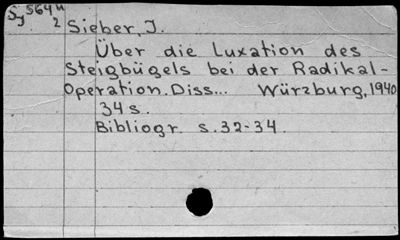 S 564 u
J. 2 Sieber, J.
Über die Luxation des
Steigbügels bei der Radikal-
Operation. Diss... Würzburg, 1940
34 s.
Bibliogr. s. 32-34.